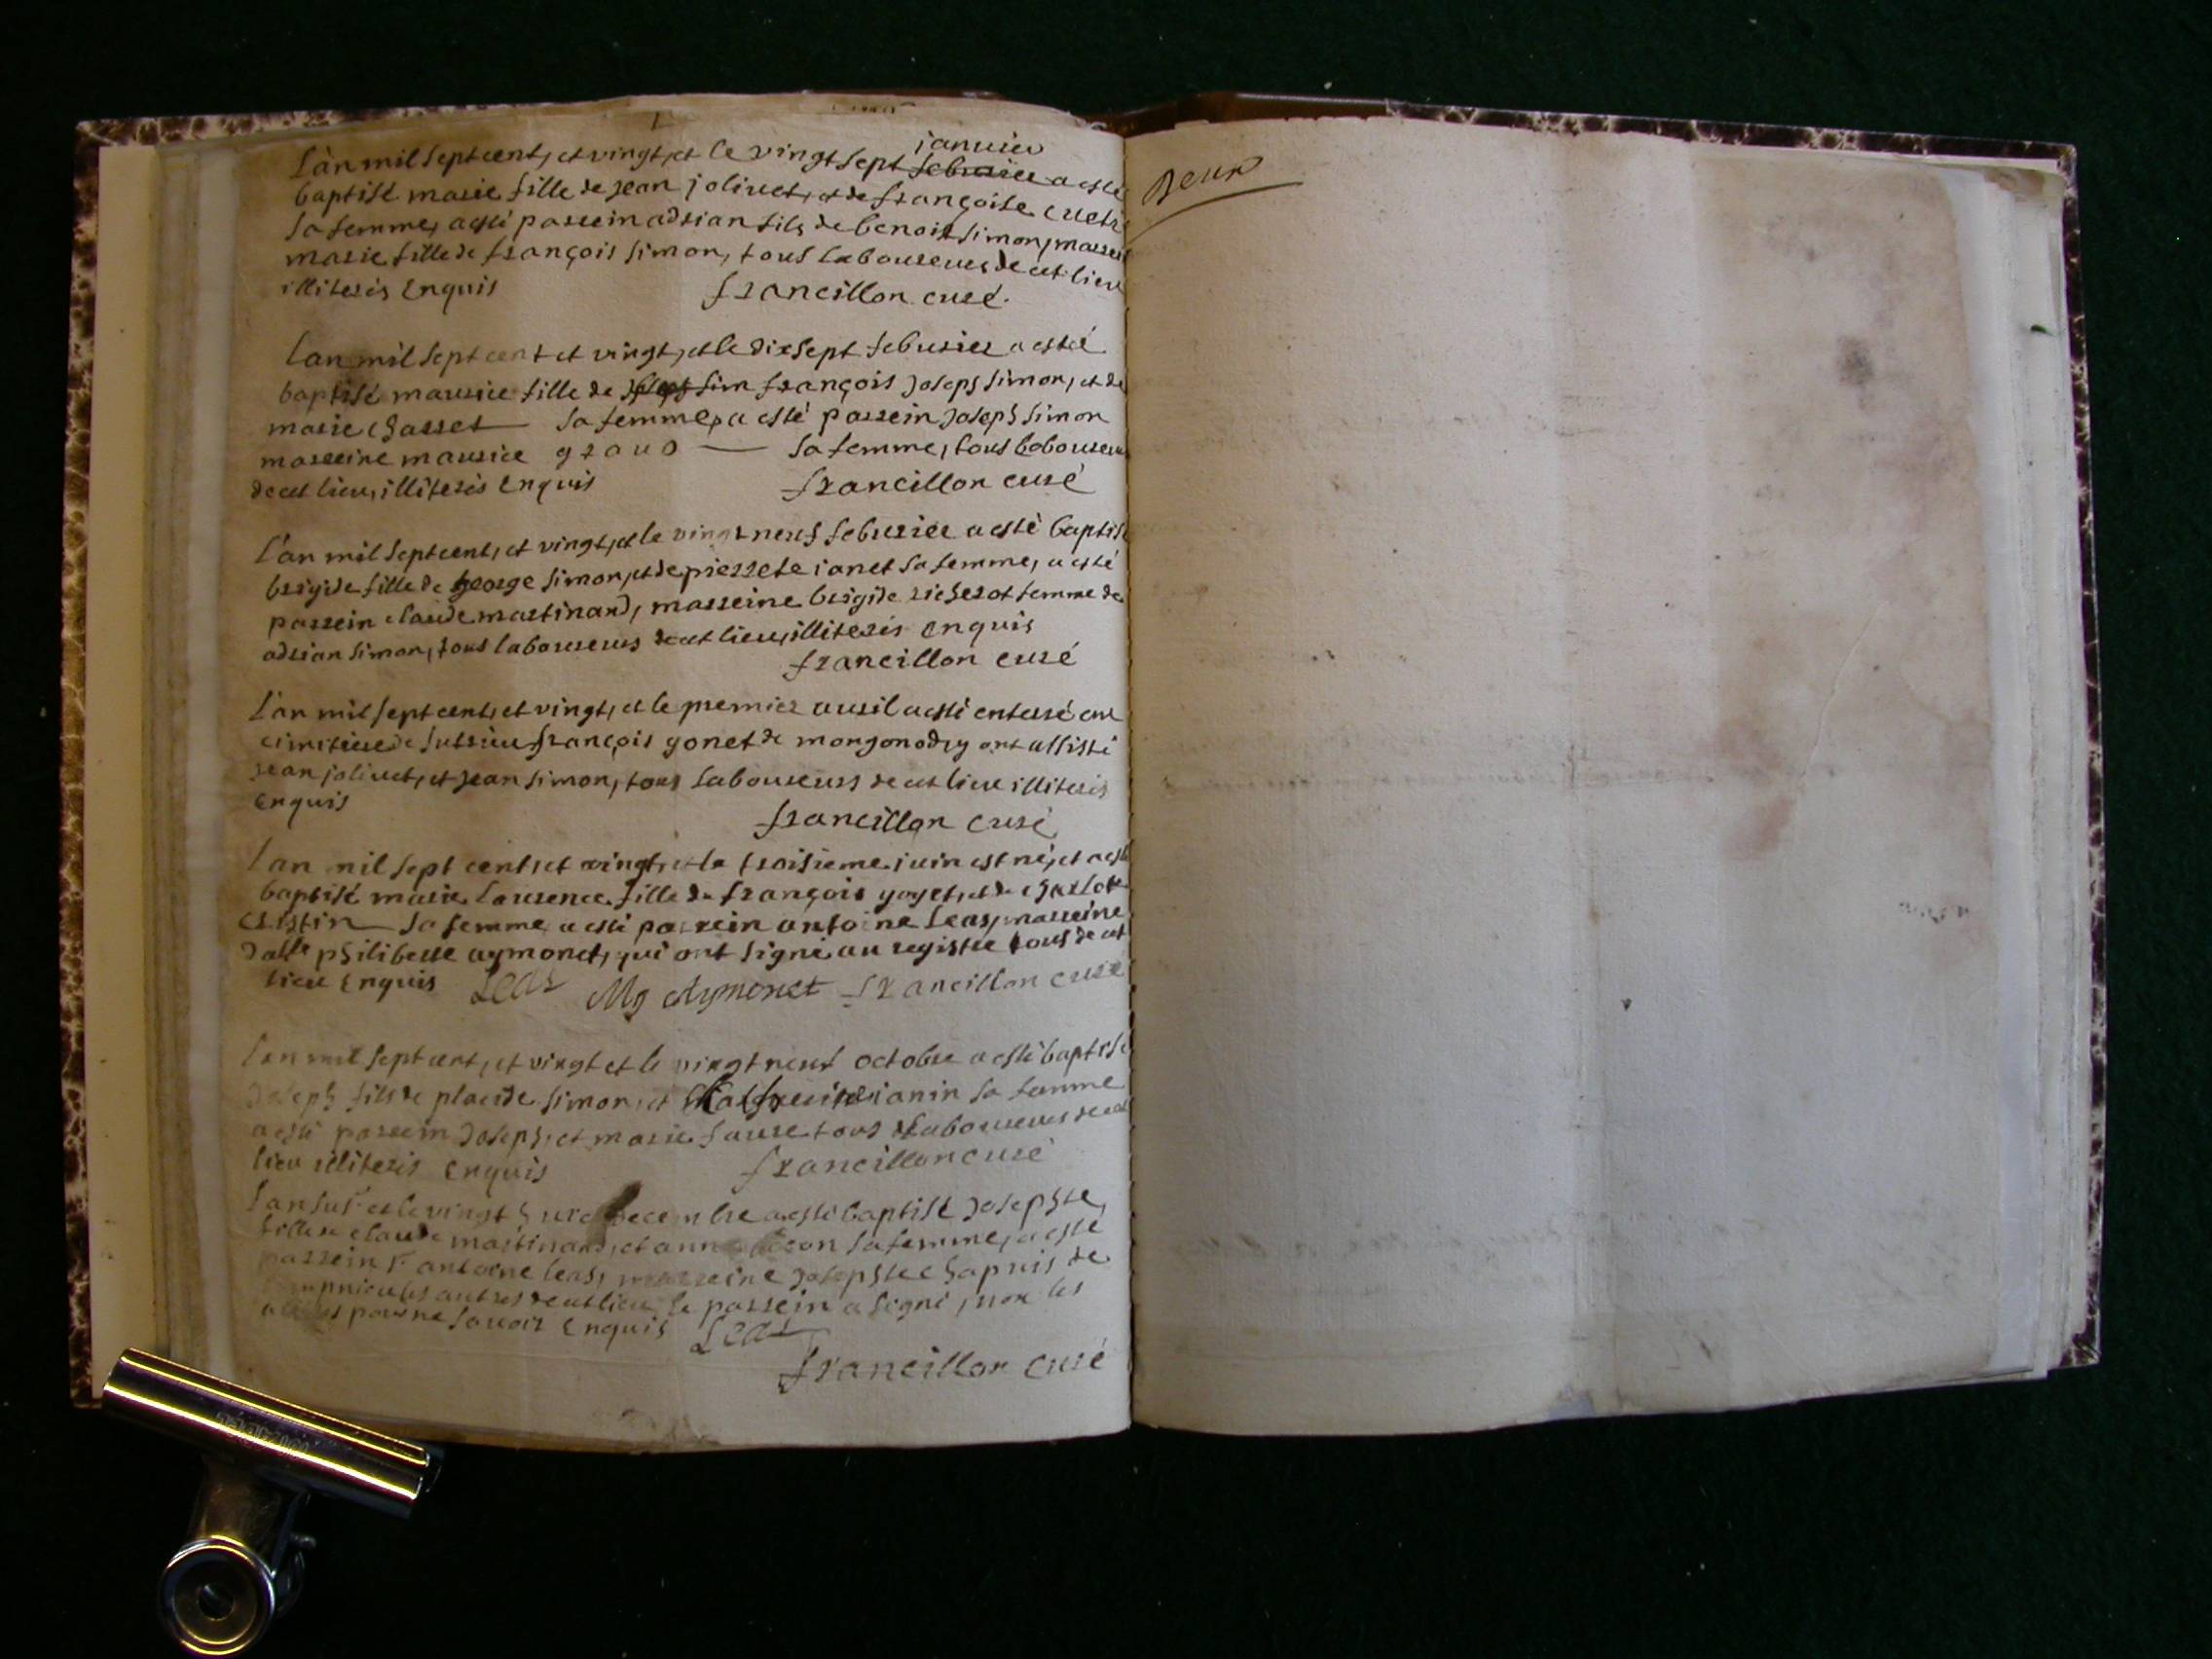 L'an mil sept cent, et vingt, et le vingt sept febvrier janvier a esté
baptisé marie fille de jean jolivet, et de françoise
sa femme, a esté parrein adrian fils de benoit simon, marreine
marie fille de françois simon, tous laboureurs de cet lieu
illiterés Enquis francillon curé.
L'an mil sept cent et vingt, et le dix sept febvrier a esté
baptisé maurice fille de joseph sim françois joseph simon, et de
marie chasset sa femme, a esté parrein joseph simon
marreine maurice graud sa femme, tous laboureurs
de cet lieu, illiterés Enquis francillon curé
L'an mil sept cent, et vingt, et le vingt neuf febvrier a esté baptisé
brigide fille de george simon, et de pierrete janet sa femme, a esté
parrein claude martinand, marreine brigide richerot femme de
adrian simon, tous laboureurs de cet lieu, illiterés Enquis
francillon curé
L'an mil sept cent, et vingt, et le premier avril a esté enterré au
cimitiere de françois gonet de ont assisté
jean jolivet, et jean simon, tous laboureurs de cet lieu illiterés
Enquis
francillon curé
L'an mil sept cent, et vingt, et le troisieme juin est né, et a esté
baptisé marie laurence fille de françois goyet, et de charlote
cristin sa femme a esté parrein antoine Leas, marreine
dalle philiberte aymonet, qui ont signé au registre tous de cet
lieu Enquis Leas Mg Aymonet francillon curé
L'an mil sept cent, et vingt et le vingt neuf octobre a esté baptisé
joseph fils de placide simon, et janin sa femme
a esté parrein joseph, et marie faure tous laboureurs de cet
lieu illiterés Enquis francillon curé
L'an sus et le vingt decembre a esté baptisé josephte,
fille de claude martinand, et anne sa femme, a esté
parrein sr antoine leas, marreine josephte chapuis de
les autres de cet lieu, le parrein a signé, non les
autres pour ne savoir Enquis Leas
francillon curé
Deux